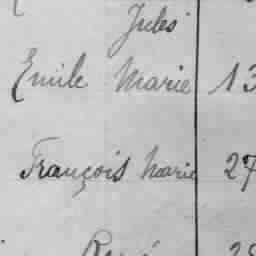 Jules
Emile Marie 13
François Marie 27
René